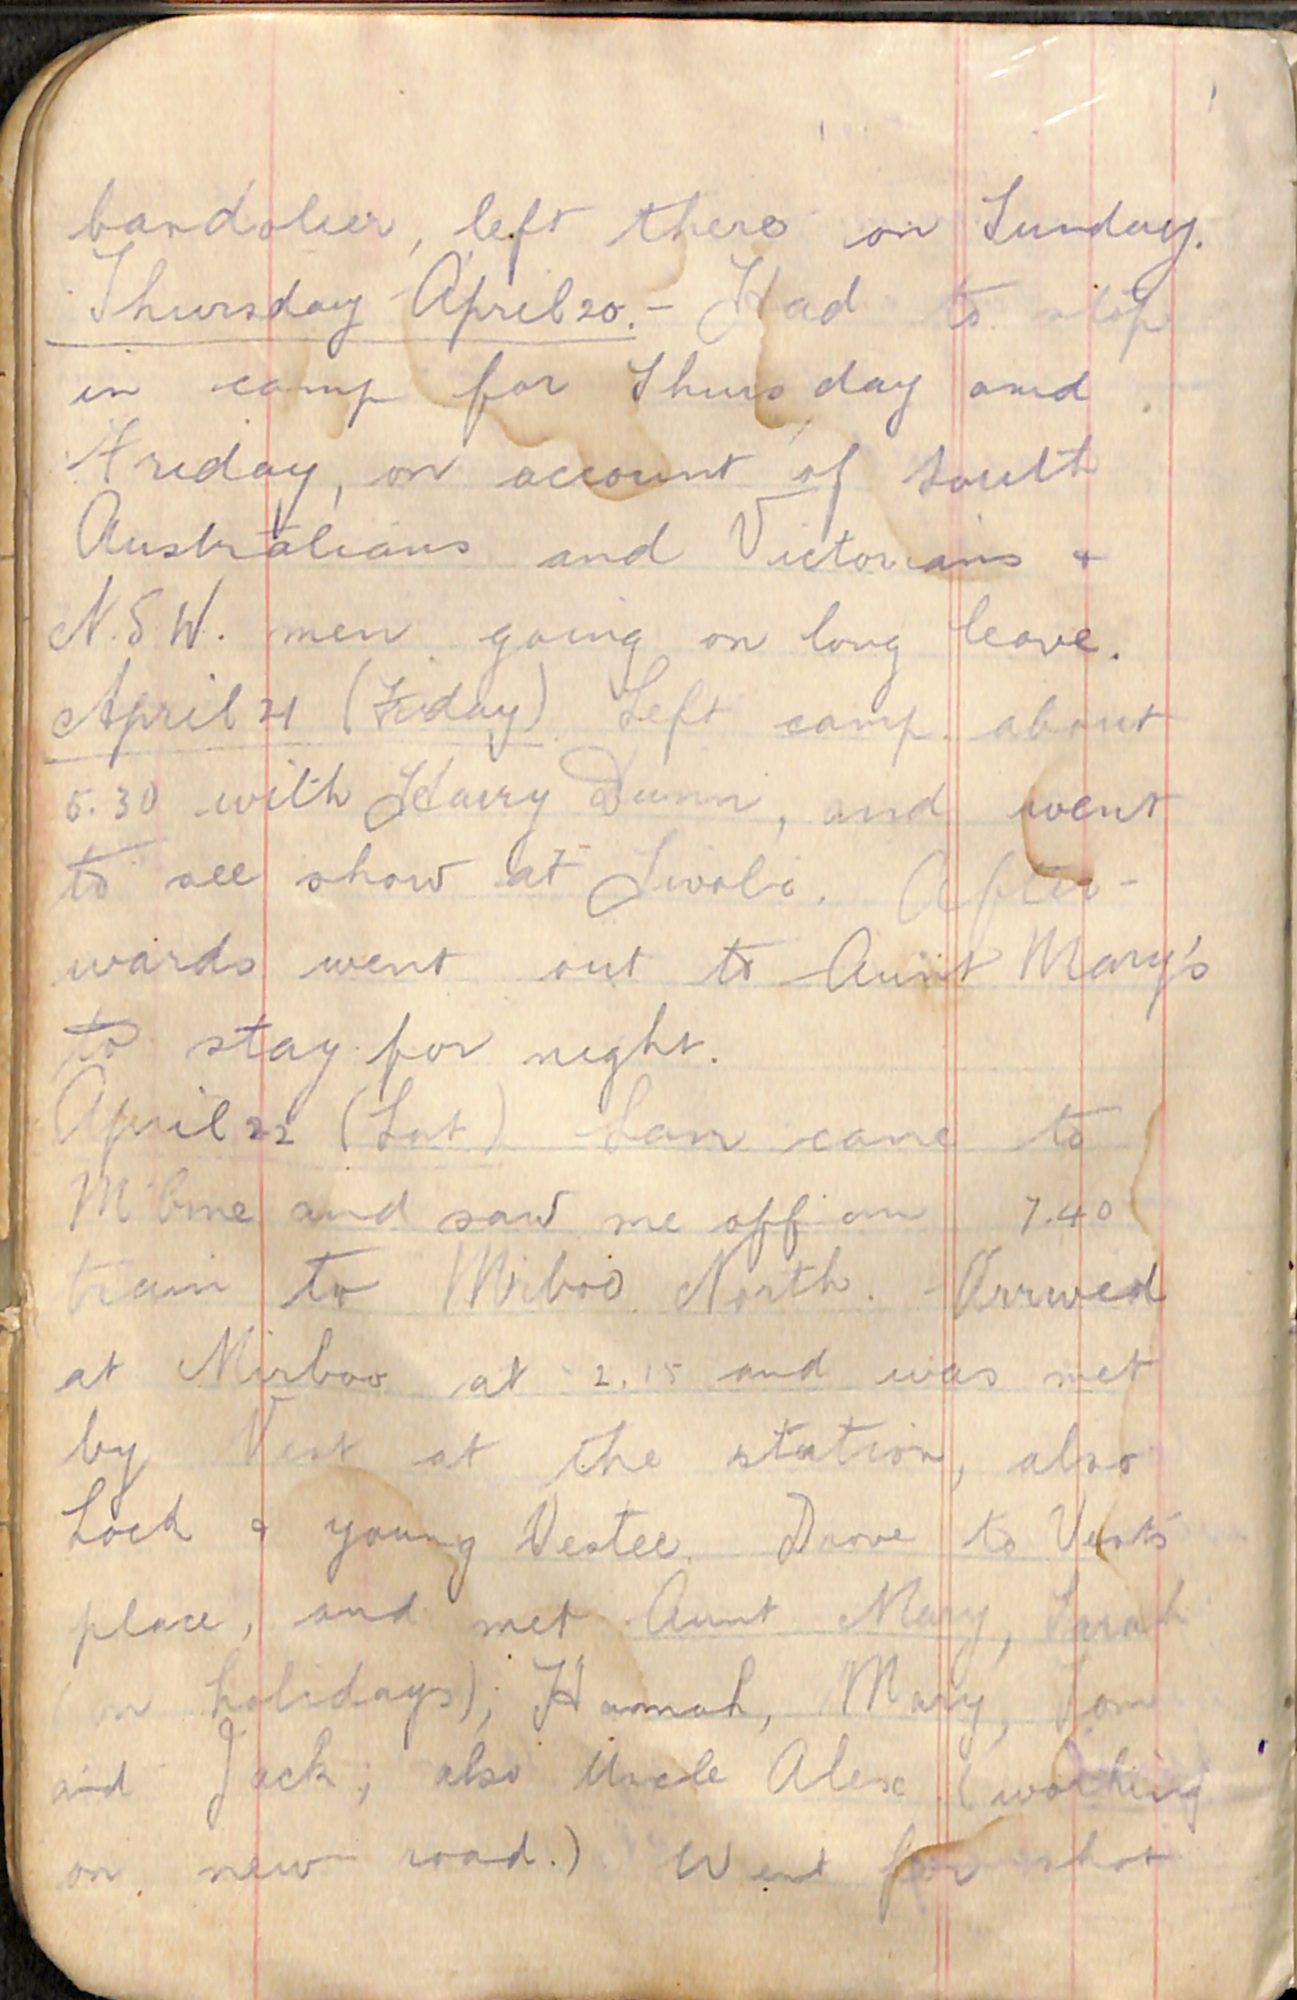 bandolier, left there on Sunday.
Thursday April 20. - Had to stop
in camp for Thursday and
Friday, on account of South
Australians and Victorians +
N.S.W. men going on long leave.
April 21 (Friday) Left camp about
5.30 with Harry Dunn, and went
to see show at Tivoli. After-
wards went out to Aunt Mary's
to stay for night.
April 22 (Sat) Sam came to
M'bne and saw me off on 7.40
train to Mirboo North. Arrived
at Mirboo at 2.15 and was met
by Vest at the station, also
Loch + young Vestee. Drove to Vest's
place, and met Aunt Mary, Sarah
(on holidays); Hannah, Mary, Tom
and Jack; also Uncle Alex (working
on new road.) Went for shot